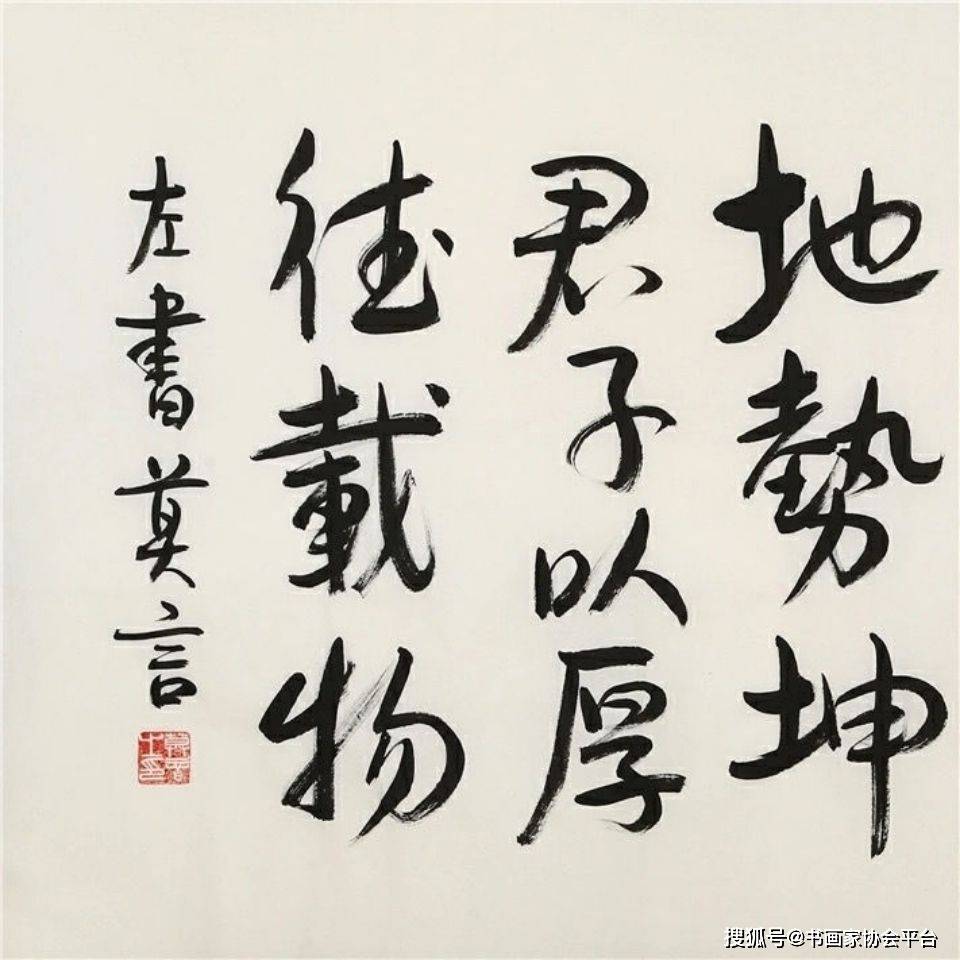 地勢坤
君子以厚
德載物
左書莫言
搜狐号@书画家协会平台